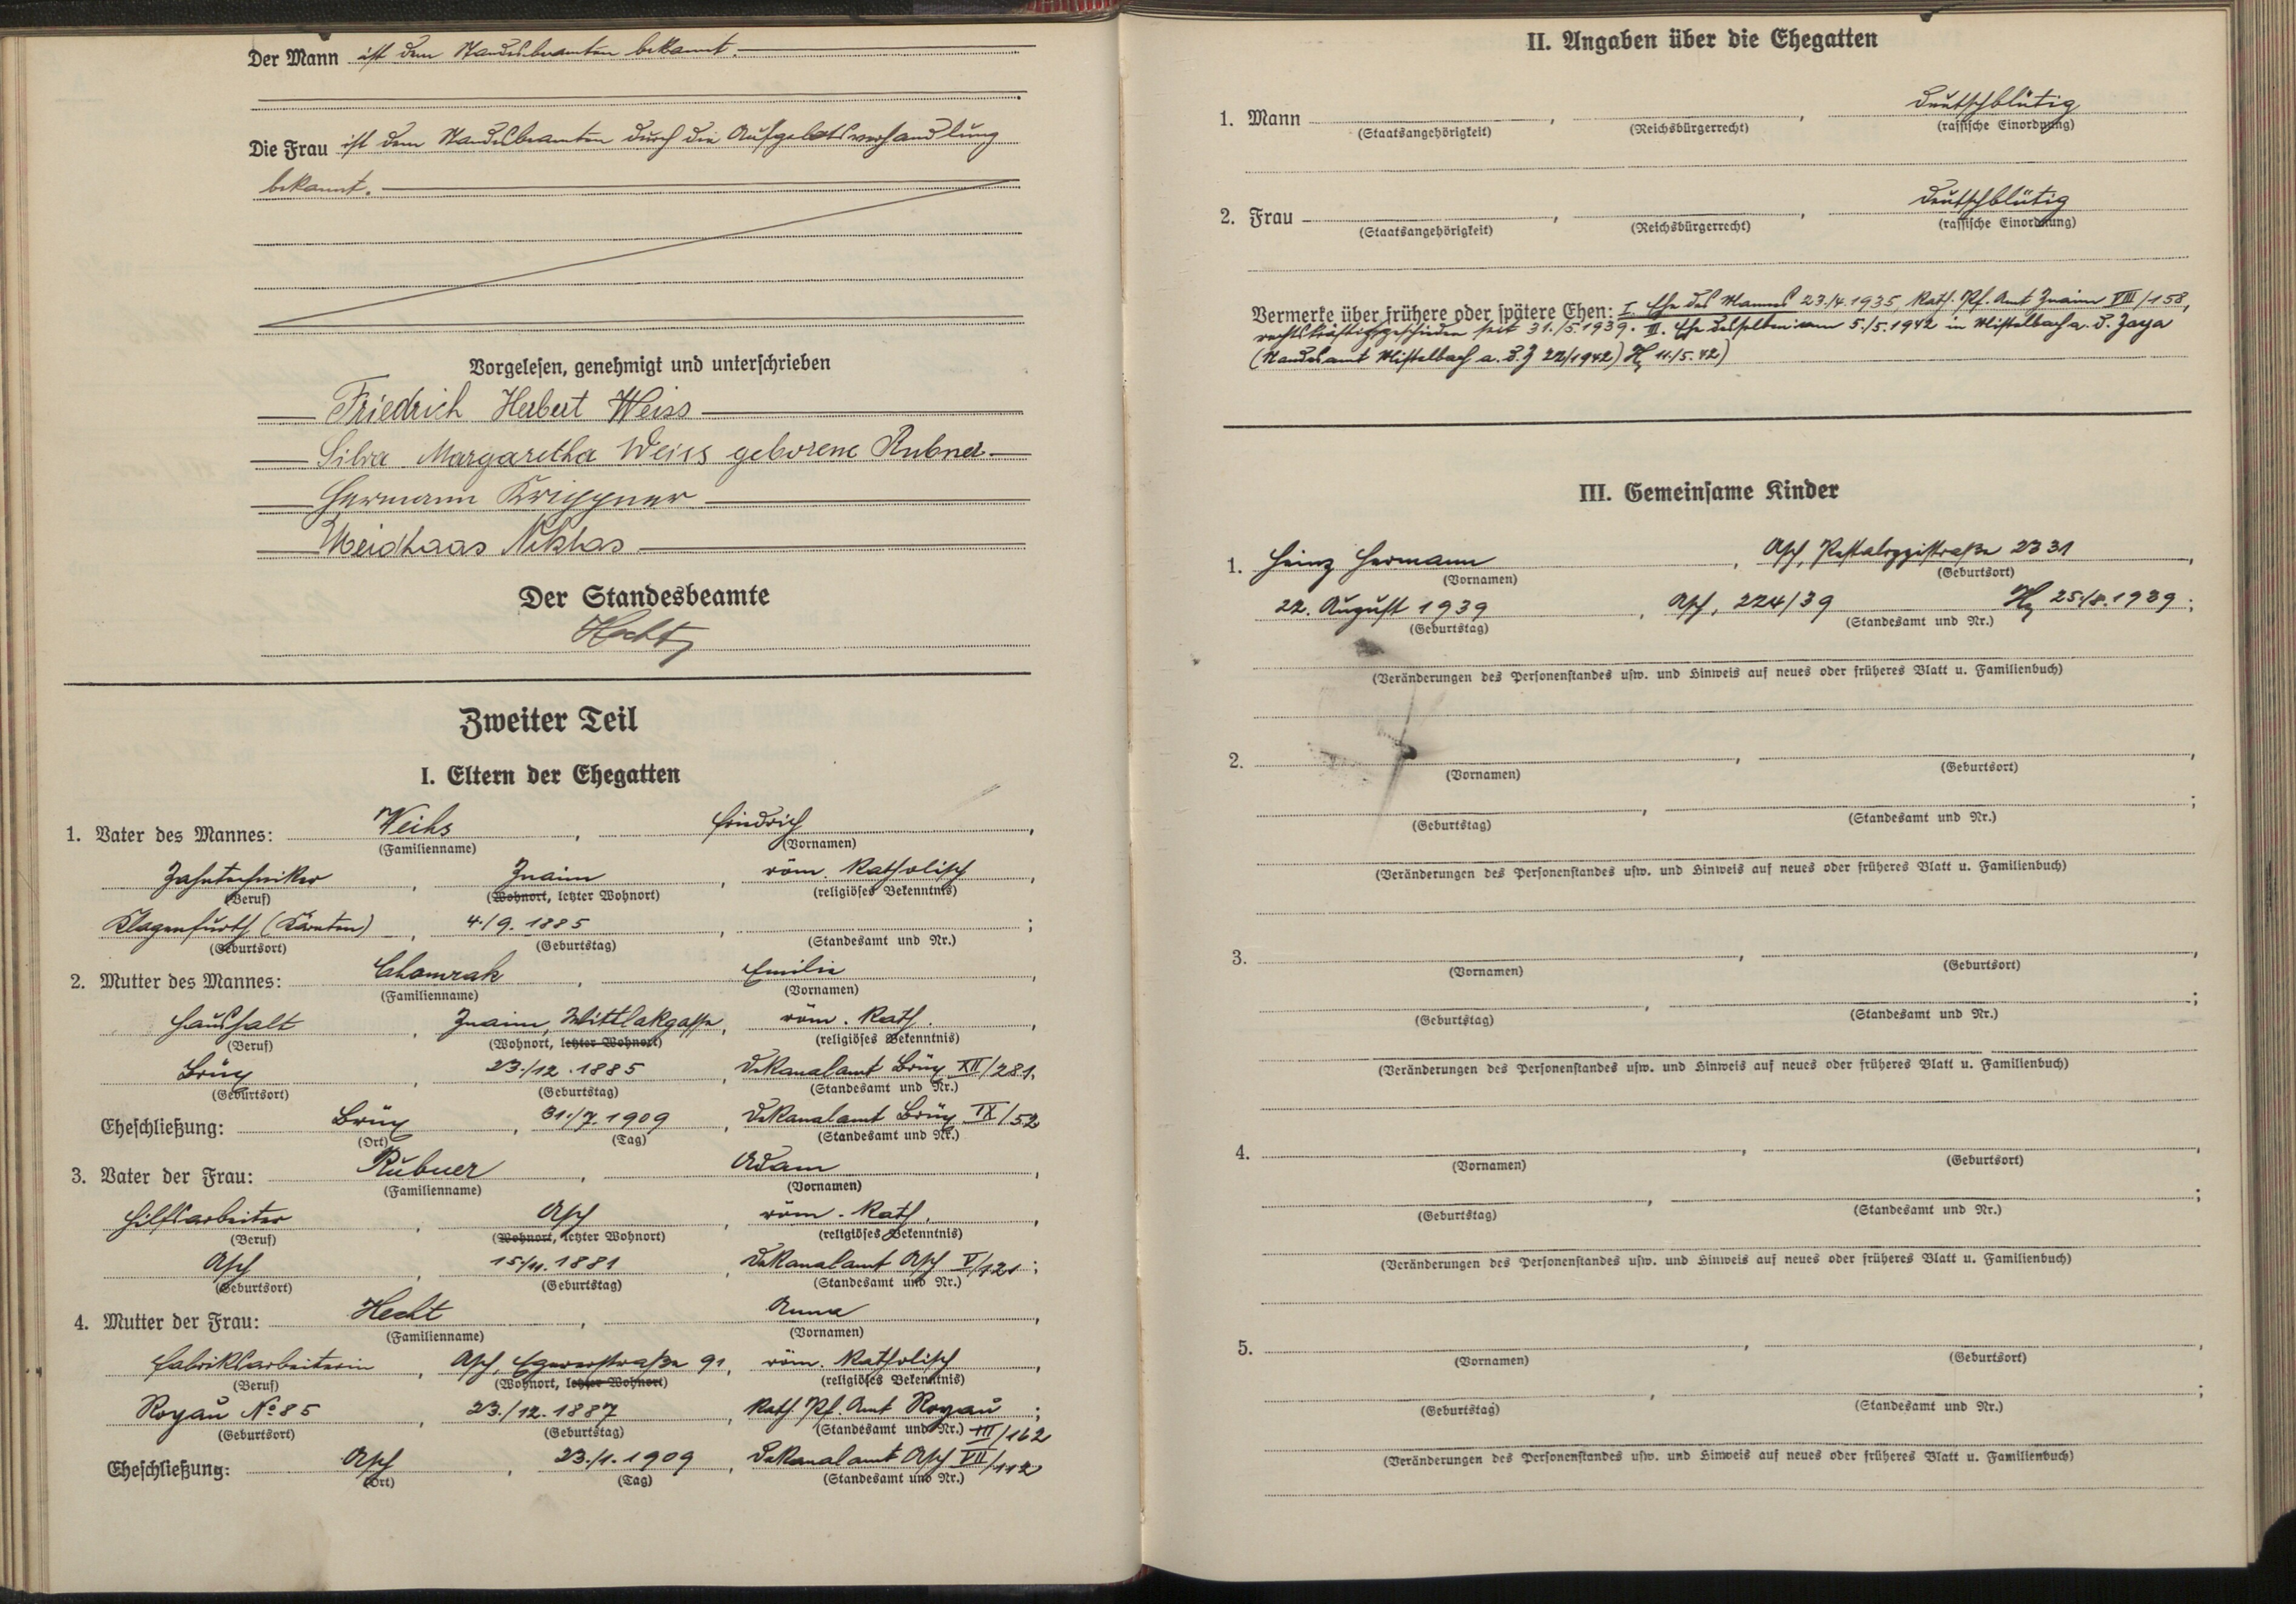 Der Mann ist dem Standesbeamten bekannt.
Die Frau ist dem Standesbeamten durch die Aufgebotsverhandlung
bekannt.
Vorgelesen, genehmigt und unterschrieben
Friedrich Herbert Weiss
Silvia Margaretha Weiss geborene Rubner
Hermann Krippner
Niklas
Der Standesbeamte
Zweiter Teil
I. Eltern der Ehegatten
1. Vater des Mannes: Weihs, Friedrich,
(Familienname) (Vornamen)
Zahntechniker, Znaim, röm. katholisch,
(Beruf) (Wohnort, letzter Wohnort) (religiöses Bekenntnis)
Klagenfurth (Kärnten), 4./9. 1885, ;
(Geburtsort) (Geburtstag) (Standesamt und Nr.)
2. Mutter des Mannes: Chamrak, Emilie,
(Familienname) (Vornamen)
Haushalt, Znaim, Wittlakgasse, röm. kath.,
(Beruf) (Wohnort, letzter Wohnort) (religiöses Bekenntnis)
Brüx, 23./12. 1885, Dekanalamt Brüx XII/281.
(Geburtsort) (Geburtstag) (Standesamt und Nr.)
Eheschließung: Brüx, 31./7. 1909, Dekanalamt Brüx IX/52
(Ort) (Tag) (Standesamt und Nr.)
3. Vater der Frau: Rubner, Adam,
(Familienname) (Vornamen)
Hilfsarbeiter, Asch, röm. kath.,
(Beruf) (Wohnort, letzter Wohnort) (religiöses Bekenntnis)
Asch, 15./11. 1881, Dekanalamt Asch V/121;
(Geburtsort) (Geburtstag) (Standesamt und Nr.)
4. Mutter der Frau: Hecht, Anna,
(Familienname) (Vornamen)
Fabriksarbeiterin, Asch, Egererstraße 91, röm. katholisch,
(Beruf) (Wohnort, letzter Wohnort) (religiöses Bekenntnis)
No 85, 23./12. 1887, Kath. Pf. Amt ;
(Geburtsort) (Geburtstag) (Standesamt und Nr.) III/162
Eheschließung: Asch, 23./1. 1909, Dekanalamt Asch VII/112
(Ort) (Tag) (Standesamt und Nr.)
II. Angaben über die Ehegatten
1. Mann , , deutschblütig
(Staatsangehörigkeit) (Reichsbürgerrecht) (rassische Einordnung)
2. Frau , , deutschblütig
(Staatsangehörigkeit) (Reichsbürgerrecht) (rassische Einordnung)
Vermerke über frühere oder spätere Ehen: I. Ehe des Mannes 23./4. 1935, Kath. Pf. Amt Znaim VIII/158,
rechtskräftig geschieden seit 31./5. 1939. III. Ehe desselben am 5./5. 1942 in Mistelbach a. d. Zaya
(Standesamt Mistelbach a. d. Z 22/1942) 11./5. 42)
III. Gemeinsame Kinder
1. Heinz Hermann, Asch, Pestalozzistraße 2331,
(Vornamen) (Geburtsort)
22. August 1939, Asch, 224/39 25./8. 1939;
(Geburtstag) (Standesamt und Nr.)
(Veränderungen des Personenstandes usw. und Hinweis auf neues oder früheres Blatt u. Familienbuch)
2. , ,
(Vornamen) (Geburtsort)
, ;
(Geburtstag) (Standesamt und Nr.)
(Veränderungen des Personenstandes usw. und Hinweis auf neues oder früheres Blatt u. Familienbuch)
3. , ,
(Vornamen) (Geburtsort)
, ;
(Geburtstag) (Standesamt und Nr.)
(Veränderungen des Personenstandes usw. und Hinweis auf neues oder früheres Blatt u. Familienbuch)
4. , ,
(Vornamen) (Geburtsort)
, ;
(Geburtstag) (Standesamt und Nr.)
(Veränderungen des Personenstandes usw. und Hinweis auf neues oder früheres Blatt u. Familienbuch)
5. , ,
(Vornamen) (Geburtsort)
, ;
(Geburtstag) (Standesamt und Nr.)
(Veränderungen des Personenstandes usw. und Hinweis auf neues oder früheres Blatt u. Familienbuch)